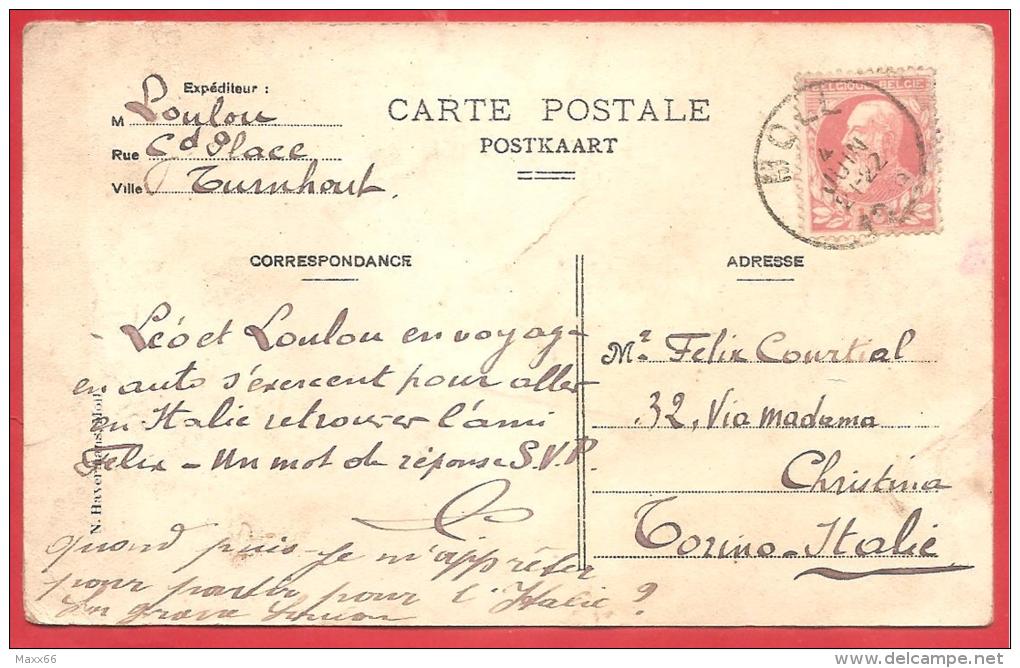 Expéditeur :
M Loulou
Rue Gd Place
Ville Turnhout
CARTE POSTALE
POSTKAART
BELGIQUE BELGIE
MOLL
4
JUIN
21-22
CORRESPONDANCE
ADRESSE
Léo et Loulou en voyage
en auto s'exercent pour aller
en Italie retrouver l'ami
Felix - Un mot de réponse S.V.P.
Quand puis-je m'apprêter
pour partir pour l'Italie ?
Mr. Felix Courtial
32, Via Madama
Christina
Torino - Italie
N. Havermans, Moll
Maxx66
www.delcampe.net